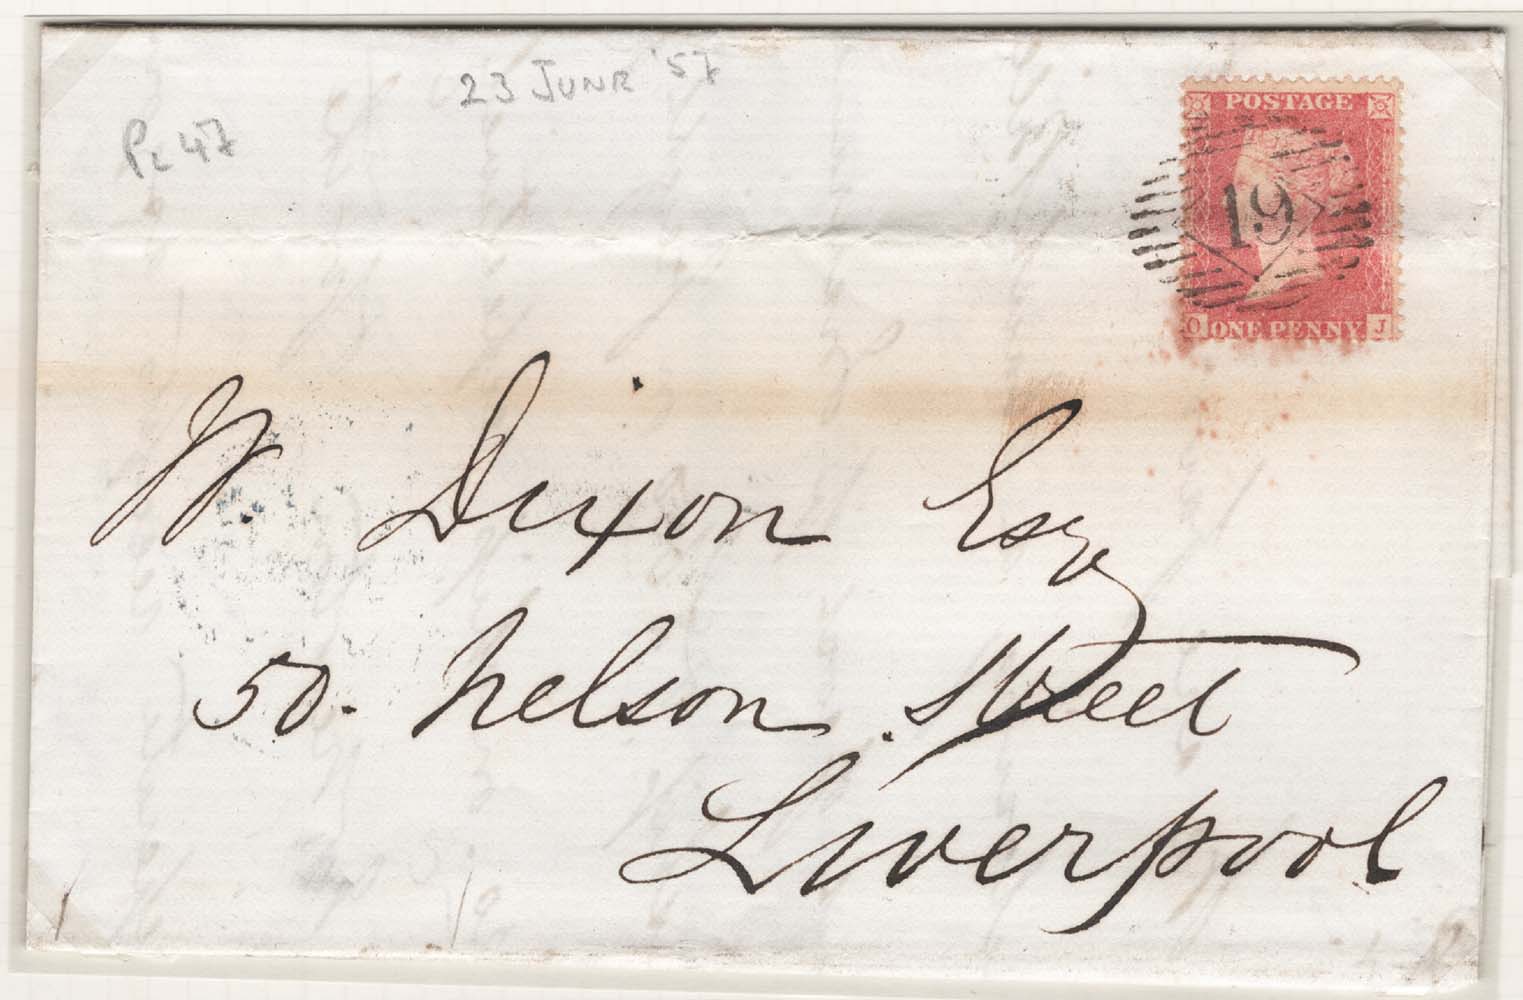 23 JUNE '57
PL 47
POSTAGE
19
O ONE PENNY J
W. Dixon Esq
50. Nelson Street
Liverpool